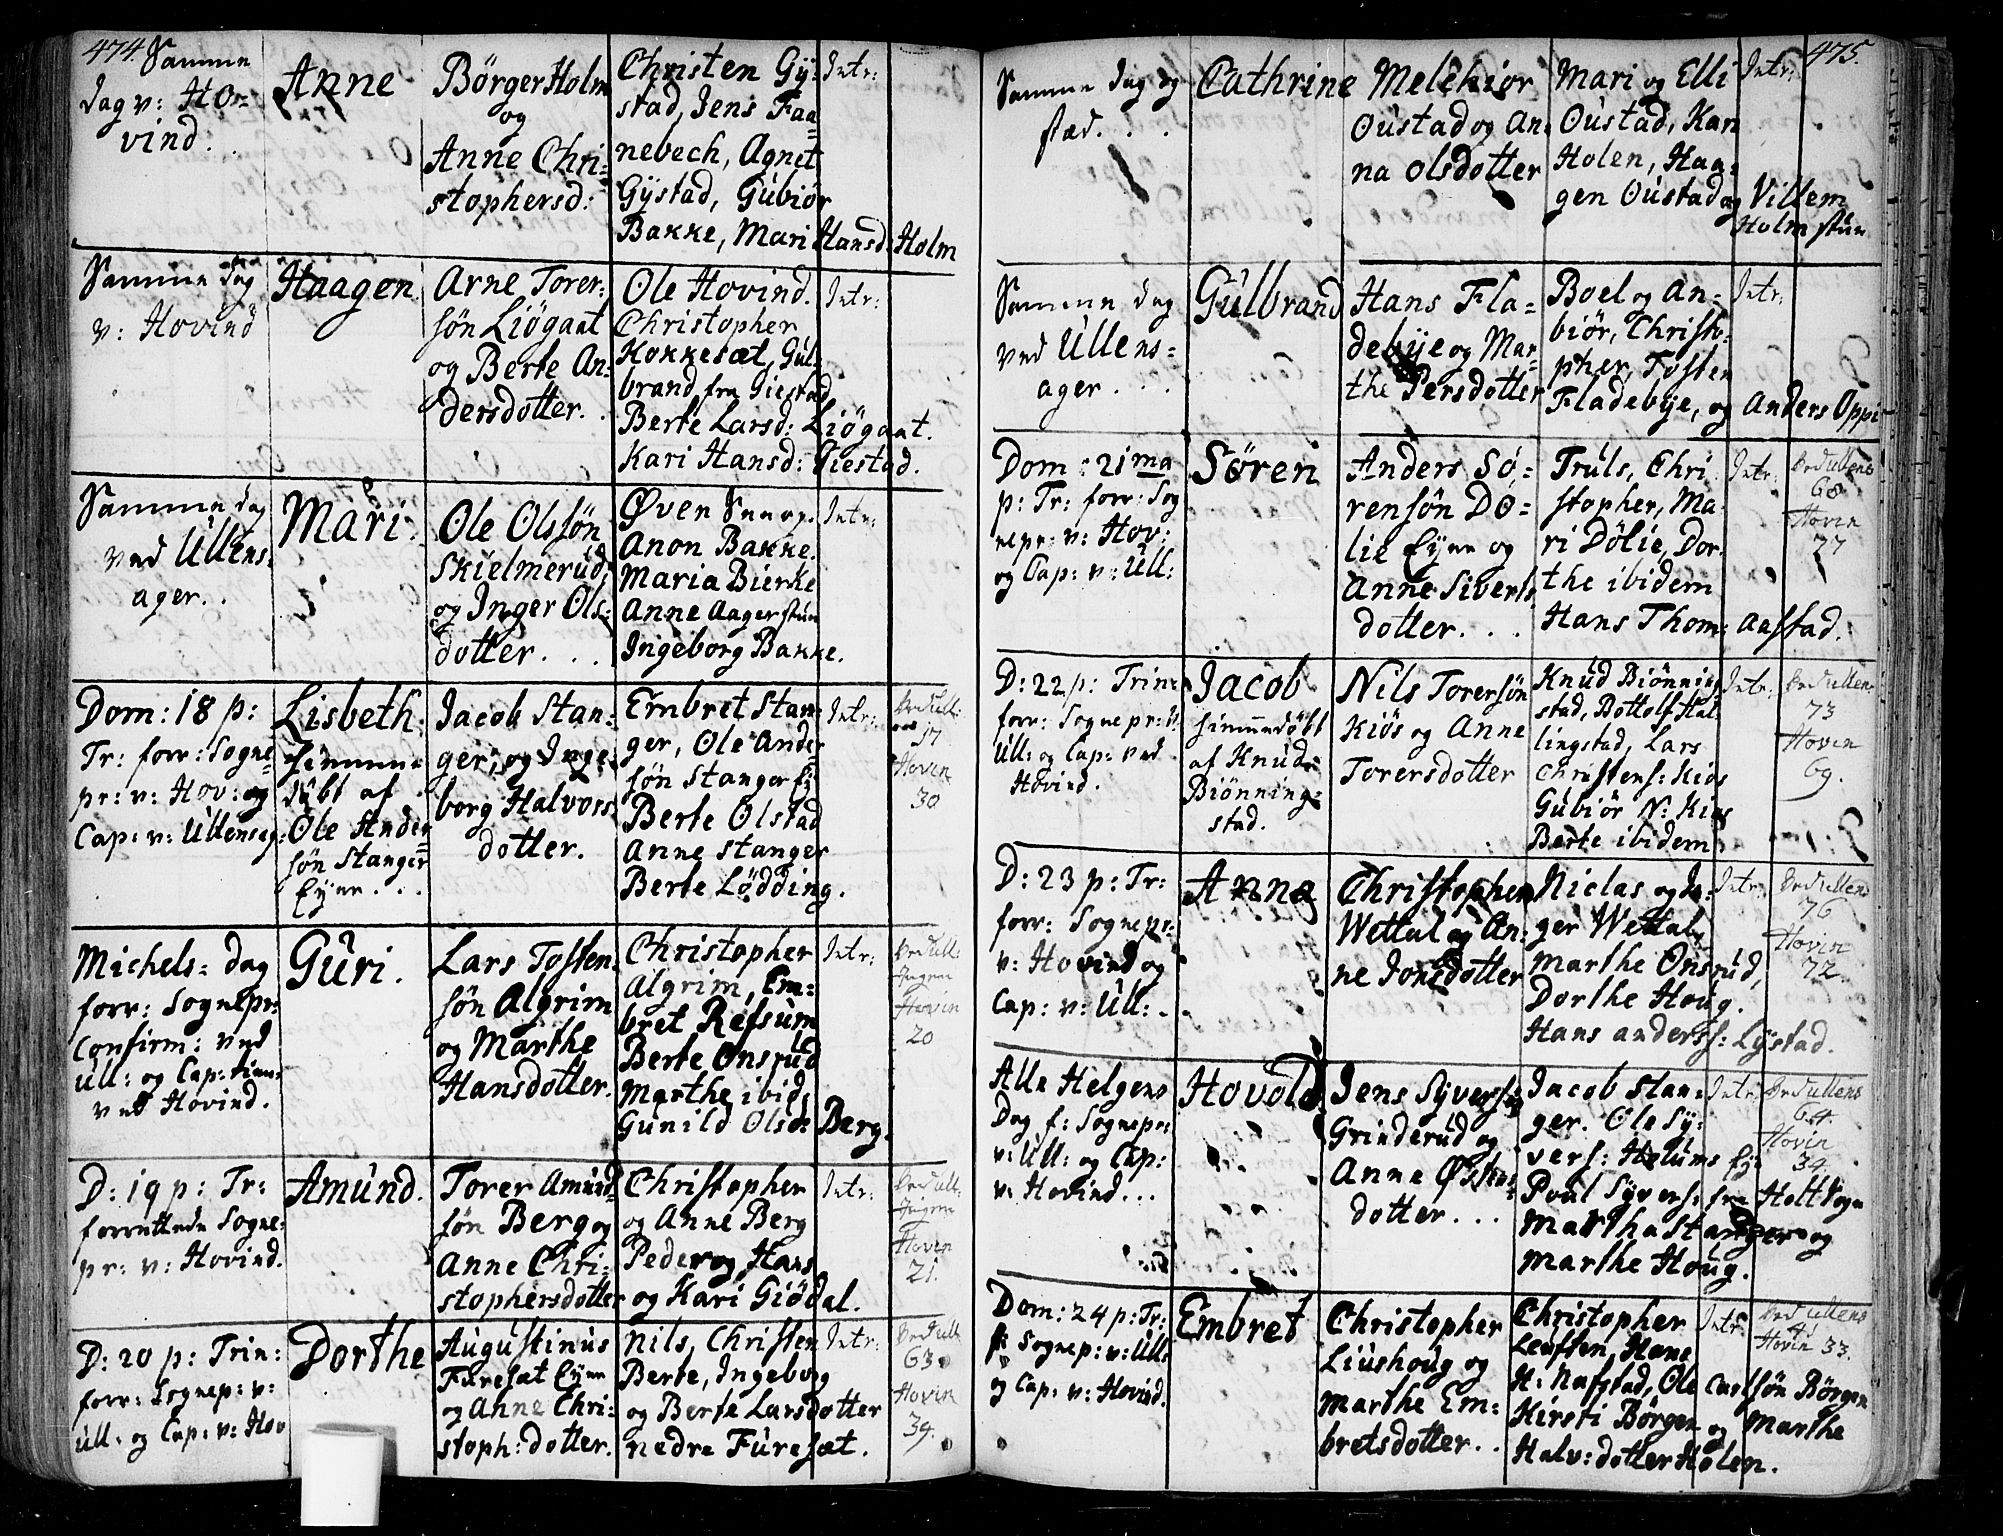 474.
Samme
dag v: Ho-
vind.
Anne
Børger Holm
og
Anne Chri-
stophersd:
Christen Gÿ-
stad, Jens Faa-
nebech, Agnet
Gÿstad, Gubiør
Bakke, Mari Hansd: Holm
Intr:
Samme dag
v: Hovind
Haagen.
Arne Torer-
søn Liøgaat
og Berte An-
dersdotter.
Ole Hovind.
Christopher
Kokkesæt, Gul-
brand fra Giestad
Berte Larsd: Liøgaat.
Kari Hansd: Giestad.
Intr:
Samme dag
ved Ullens-
ager.
Mari.
Ole Olssøn
Skielmerud,
og Inger Ols-
dotter.
Øven
Anon Bakke.
Maria Bierke
Anne Aagerstun
Ingeborg Bakke.
Intr:
Dom: 18 p:
Tr: forr: Sogne-
pr: v: Hov: og
Cap: v: Ullensag:
Lisbeth.
himme-
døbt af
Ole Ander-
søn Stanger
Eÿer
Jacob Stan-
ger, og Inge-
borg Halvors-
dotter.
Embret Stan-
ger, Ole Ander-
søn Stanger Eÿ
Berte Olstad
Anne Stanger
Berte Lødding.
Intr:
Ved Ull:
17
Hovin
30
Michels- dag
forr: Sognepr:
Confirm: ved
Ull: og Cap:
ved Hovind.
Guri.
Lars Tosten-
søn Algrim
og Marthe
Hansdotter.
Christopher
Algrim, Em-
bret Refsum
Berte Onsrud
Marthe ibid:
Gunild Olsd: Berg.
Intr:
Ved Ull:
Ingen
Hovin
20
D: 19 p: Tr:
forrettede Sogne-
pr: v: Hovind.
Amund.
Torer Amund-
søn Berg og
Anne Chri-
stophersdotter
Christopher
og Anne Berg
Peder og Hans
og Kari Giødal.
Intr:
Ved Ull:
Ingen
Hoven
21.
D: 20 p: Trin:
forr: Sognep: v:
Ull. og Cap: v: Hov
Dorthe
Augustinus
Furesæt Eÿer
og Anne Chri-
stoph: dotter.
Nils, Christen
Berte, Ingeborg
og Berte Larsdotter
nedre Furesæt.
Intr:
Ved Ull:
63.
Hovin
39.
475.
Samme dag og
stæd.
Cathrine
Melchior
Oustad og An-
na Olsdotter
Mari og Elli
Oustad, Kari
Holen, Haa-
gen Oustad og Villem
Holmstun
Intr:
Samme dag
ved Ullens-
ager.
Gulbrand
Hans Fla-
debÿe og Mar-
the Persdotter
Boel og An-
biør, Christo-
pher, Tosten
Fladebÿe, og Anders Oppi
Intr:
Dom: 21 ma
p: Tr: forr: Sog
nepr: v: Hov:
og Cap: v: Ull:
Søren
Anders Sø-
rensøn Dø-
lie Eÿer og
Anne Siverts
dotter.
Truls, Chri
stopher, Ma-
ri Dølie, Dor-
the ibidem
Hans Thom: Aastad.
Intr:
Ved Ullens
68
Hovin
77
D: 22 p: Trin:
forr: Sognepr: v:
Ull: og Cap: ved
Hovind.
Jacob
himmedøbt
af Knud
Biønning-
stad.
Nils Torersøn
Kiøs og Anne
Torersdotter
Knud Biønning
stad, Bottolf Hal
lingstad, Lars
Christens: Kiøs
Gubiør N: Kiøs
Berte ibidem
Intr:
Ved Ullens
73
Hovin
69.
D: 23 p: Tr:
forr: Sognepr:
v: Hovind og
Cap: v: Ull:
Anna
Christopher
Wettal og An-
ne Jonsdotter
Niclas og In-
ger Wettal,
Marthe Onsrud,
Dorthe Houg.
Hans Anderss: Lÿstad.
Intr:
Ved Ullens
76
Hovin
72.
Alle Helgens
Dag f: Sognepr:
v: Ull: og Cap:
v: Hovind...
Hovold
Jens Sÿvers:
Grinderud og
Anne Østens-
dotter...
Jacob Stan-
ger. Ole Sÿ-
vers: Helums Eÿ
Poul Sÿvers: fra Holt Sogn
Martha Stanger og
Marthe Houg.
Intr:
Ved Ullens
64.
Hovin
34.
Dom: 24 p: Tr:
f: Sognep: v: Ull:
og Cap: v: Hovind.
Embret
Christopher
Liushoug og
Marthe Em-
bretsdotter.
Christopher
Leufsen, Hans
H: Nafstad, Ole Carlsøn Børgen
Kirsti Børgen og Marthe
Halv: dotter Holen.
Intr:
Ved Ullens
41
Hovin 33.